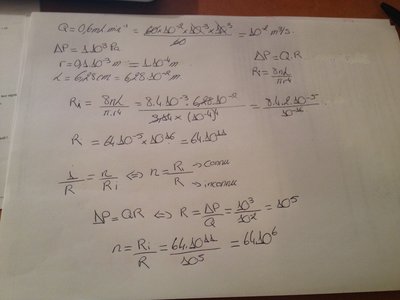 Q = 0,6 ml.min⁻¹ = 60.10⁻² × 10⁻³ × 10⁻³ / 60 = 10⁻² m³/s.
ΔP = 1.10³ Pa
ΔP = Q.R
r = 0,1.10⁻³ m = 1.10⁻⁴ m
Ri = 8ηL / π.r⁴
L = 6,28 cm = 6,28.10⁻² m
R₁ = 8ηL / π.r⁴ = 8.4.10⁻³ . 6,28.10⁻² / 3,14 × (10⁻⁴)⁴ = 8.4.2.10⁻⁵ / 10⁻¹⁶
R = 64.10⁻⁵ × 10¹⁶ = 64.10¹¹
1/R = n/Ri ⇔ n = Ri/R → connu → inconnu
ΔP = QR ⇔ R = ΔP/Q = 10³/10² = 10⁵
n = Ri/R = 64.10¹¹ / 10⁵ = 64.10⁶